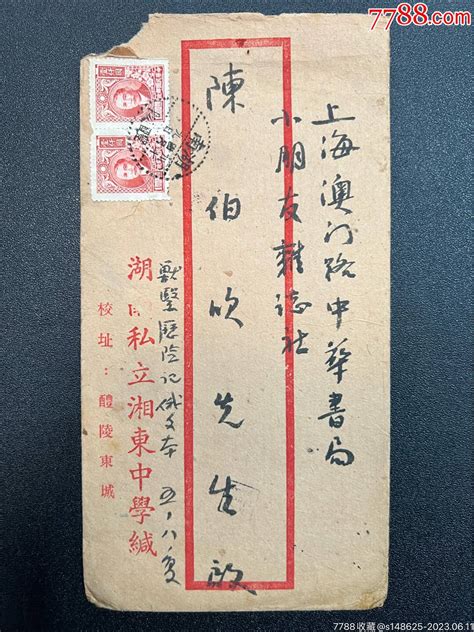 7788.com
上海澳门路中華書局
小朋友雜誌社
陳伯吹先生啟
獸醫歷险记俄文本 五、八、复
湖 私立湘東中學緘
校址：醴陵東城
7788收藏@s148625-2023.06.11